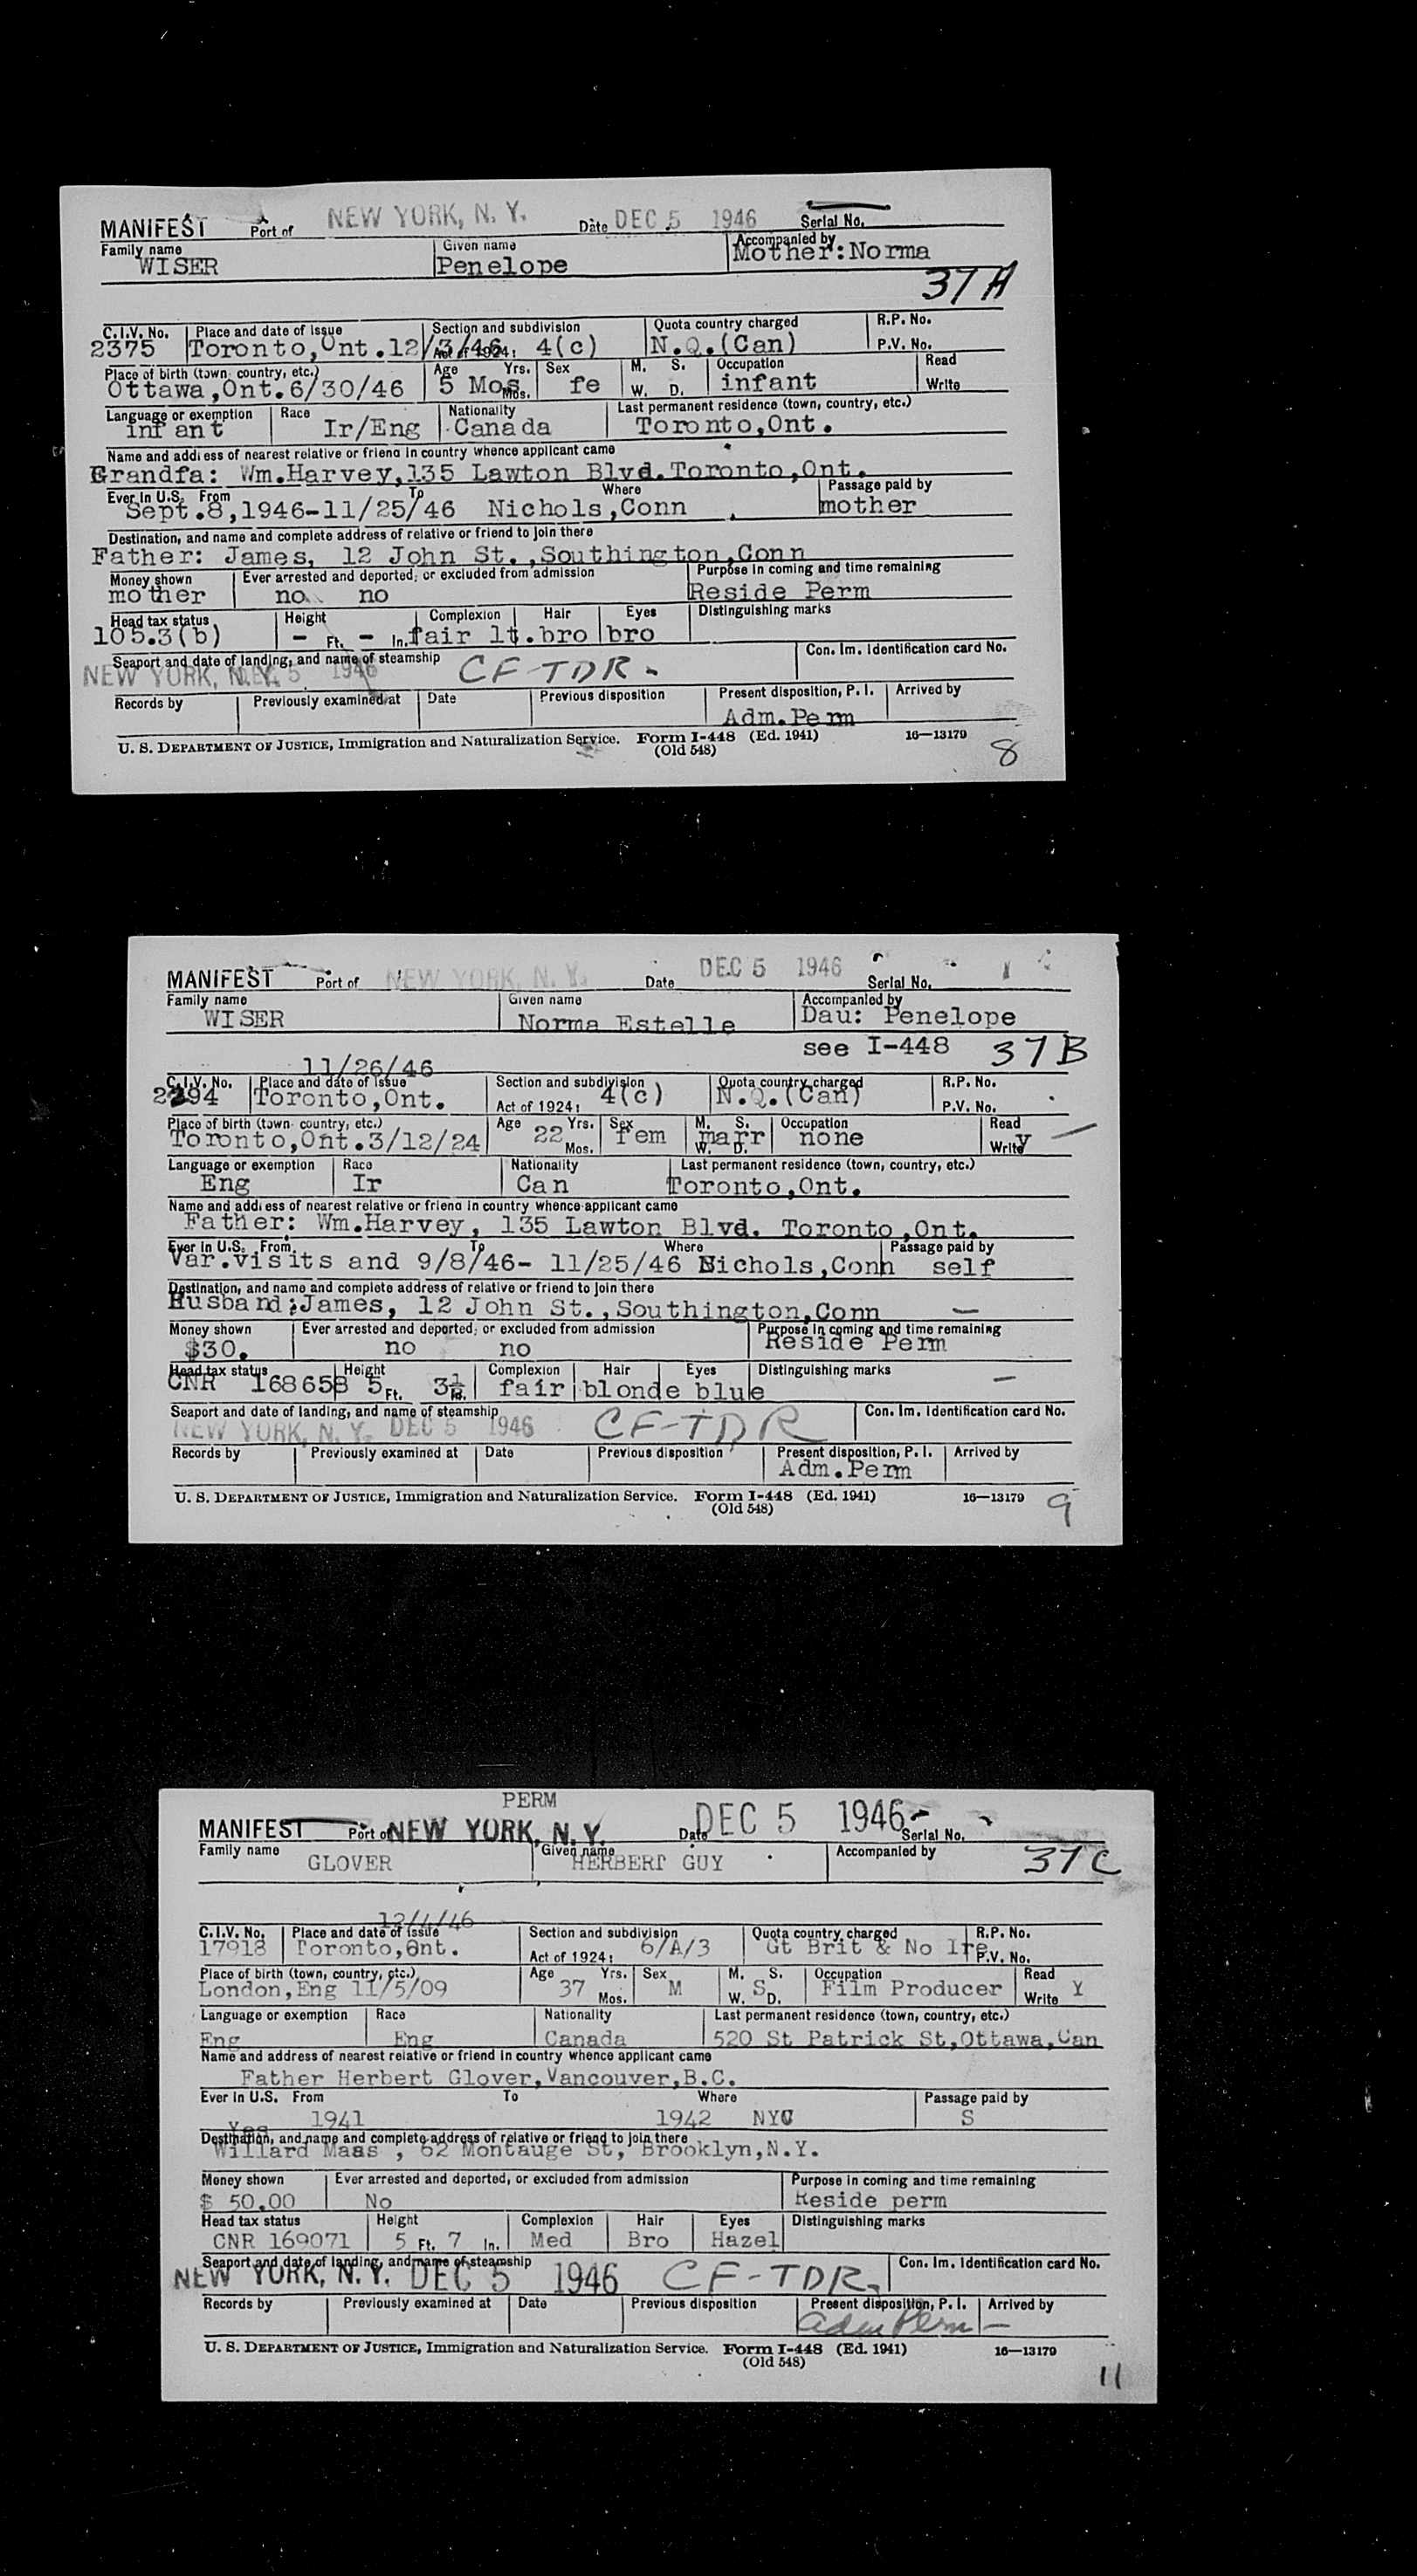 MANIFEST Port of NEW YORK, N. Y. Date DEC 5 1946 Serial No.
Family name Given name Accompanied by
WISER Penelope Mother:Norma
37A
C.I.V. No. Place and date of issue Section and subdivision Quota country charged R.P. No.
2375 Toronto,Ont.12/3/46 Act of 1924: 4(c) N.Q.(Can) P.V. No.
Place of birth (town, country, etc.) Age Yrs. Sex M. S. Occupation Read
Ottawa,Ont.6/30/46 5 Mos. Mos. fe W. D. infant Write
Language or exemption Race Nationality Last permanent residence (town, country, etc.)
infant Ir/Eng Canada Toronto,Ont.
Name and address of nearest relative or friend in country whence applicant came
Grandfa: Wm.Harvey,135 Lawton Blvd.Toronto,Ont.
Ever in U.S. From To Where Passage paid by
Sept.8,1946-11/25/46 Nichols,Conn mother
Destination, and name and complete address of relative or friend to join there
Father: James, 12 John St.,Southington,Conn
Money shown Ever arrested and deported, or excluded from admission Purpose in coming and time remaining
mother no no Reside Perm
Head tax status Height Complexion Hair Eyes Distinguishing marks
105.3(b) - Ft. - In. fair lt.bro bro
Seaport and date of landing, and name of steamship Con. Im. Identification card No.
NEW YORK, N.Y. 5 1946 CF-TDR.
Records by Previously examined at Date Previous disposition Present disposition, P. I. Arrived by
Adm.Perm
U. S. DEPARTMENT OF JUSTICE, Immigration and Naturalization Service. Form I-448 (Ed. 1941) 16—13179
(Old 548)
8
MANIFEST Port of NEW YORK, N. Y. Date DEC 5 1946 Serial No.
Family name Given name Accompanied by
WISER Norma Estelle Dau: Penelope
see I-448 37B
11/26/46
C.I.V. No. Place and date of issue Section and subdivision Quota country charged R.P. No.
2294 Toronto,Ont. Act of 1924: 4(c) N.Q.(Can) P.V. No.
Place of birth (town, country, etc.) Age Yrs. Sex M. S. Occupation Read
Toronto,Ont.3/12/24 22 Mos. fem marr W. D. none Write y
Language or exemption Race Nationality Last permanent residence (town, country, etc.)
Eng Ir Can Toronto,Ont.
Name and address of nearest relative or friend in country whence applicant came
Father: Wm.Harvey, 135 Lawton Blvd. Toronto,Ont.
Ever in U.S. From To Where Passage paid by
Var.visits and 9/8/46- 11/25/46 Nichols,Conn self
Destination, and name and complete address of relative or friend to join there
Husband:James, 12 John St.,Southington,Conn
Money shown Ever arrested and deported, or excluded from admission Purpose in coming and time remaining
$30. no no Reside Perm
Head tax status Height Complexion Hair Eyes Distinguishing marks
CNR 168658 5 Ft. 3½ In. fair blonde blue
Seaport and date of landing, and name of steamship Con. Im. Identification card No.
NEW YORK, N. Y. DEC 5 1946 CF-TDR
Records by Previously examined at Date Previous disposition Present disposition, P. I. Arrived by
Adm.Perm
U. S. DEPARTMENT OF JUSTICE, Immigration and Naturalization Service. Form I-448 (Ed. 1941) 16—13179
(Old 548)
9
PERM
MANIFEST Port of NEW YORK, N. Y. Date DEC 5 1946 Serial No.
Family name Given name Accompanied by
GLOVER HERBERT GUY 37C
12/4/46
C.I.V. No. Place and date of issue Section and subdivision Quota country charged R.P. No.
17918 Toronto,Ont. Act of 1924: 6/A/3 Gt Brit & No Ire P.V. No.
Place of birth (town, country, etc.) Age Yrs. Sex M. S. Occupation Read
London,Eng 11/5/09 37 Mos. M W. S D. Film Producer Write Y
Language or exemption Race Nationality Last permanent residence (town, country, etc.)
Eng Eng Canada 520 St Patrick St,Ottawa,Can
Name and address of nearest relative or friend in country whence applicant came
Father Herbert Glover,Vancouver,B.C.
Ever in U.S. From To Where Passage paid by
Yes 1941 1942 NYC S
Destination, and name and complete address of relative or friend to join there
Willard Maas , 62 Montauge St, Brooklyn,N.Y.
Money shown Ever arrested and deported, or excluded from admission Purpose in coming and time remaining
$ 50.00 No Reside perm
Head tax status Height Complexion Hair Eyes Distinguishing marks
CNR 169071 5 Ft. 7 In. Med Bro Hazel
Seaport and date of landing, and name of steamship Con. Im. Identification card No.
NEW YORK, N. Y. DEC 5 1946 CF-TDR.
Records by Previously examined at Date Previous disposition Present disposition, P. I. Arrived by
Adm Perm
U. S. DEPARTMENT OF JUSTICE, Immigration and Naturalization Service. Form I-448 (Ed. 1941) 16—13179
(Old 548)
11